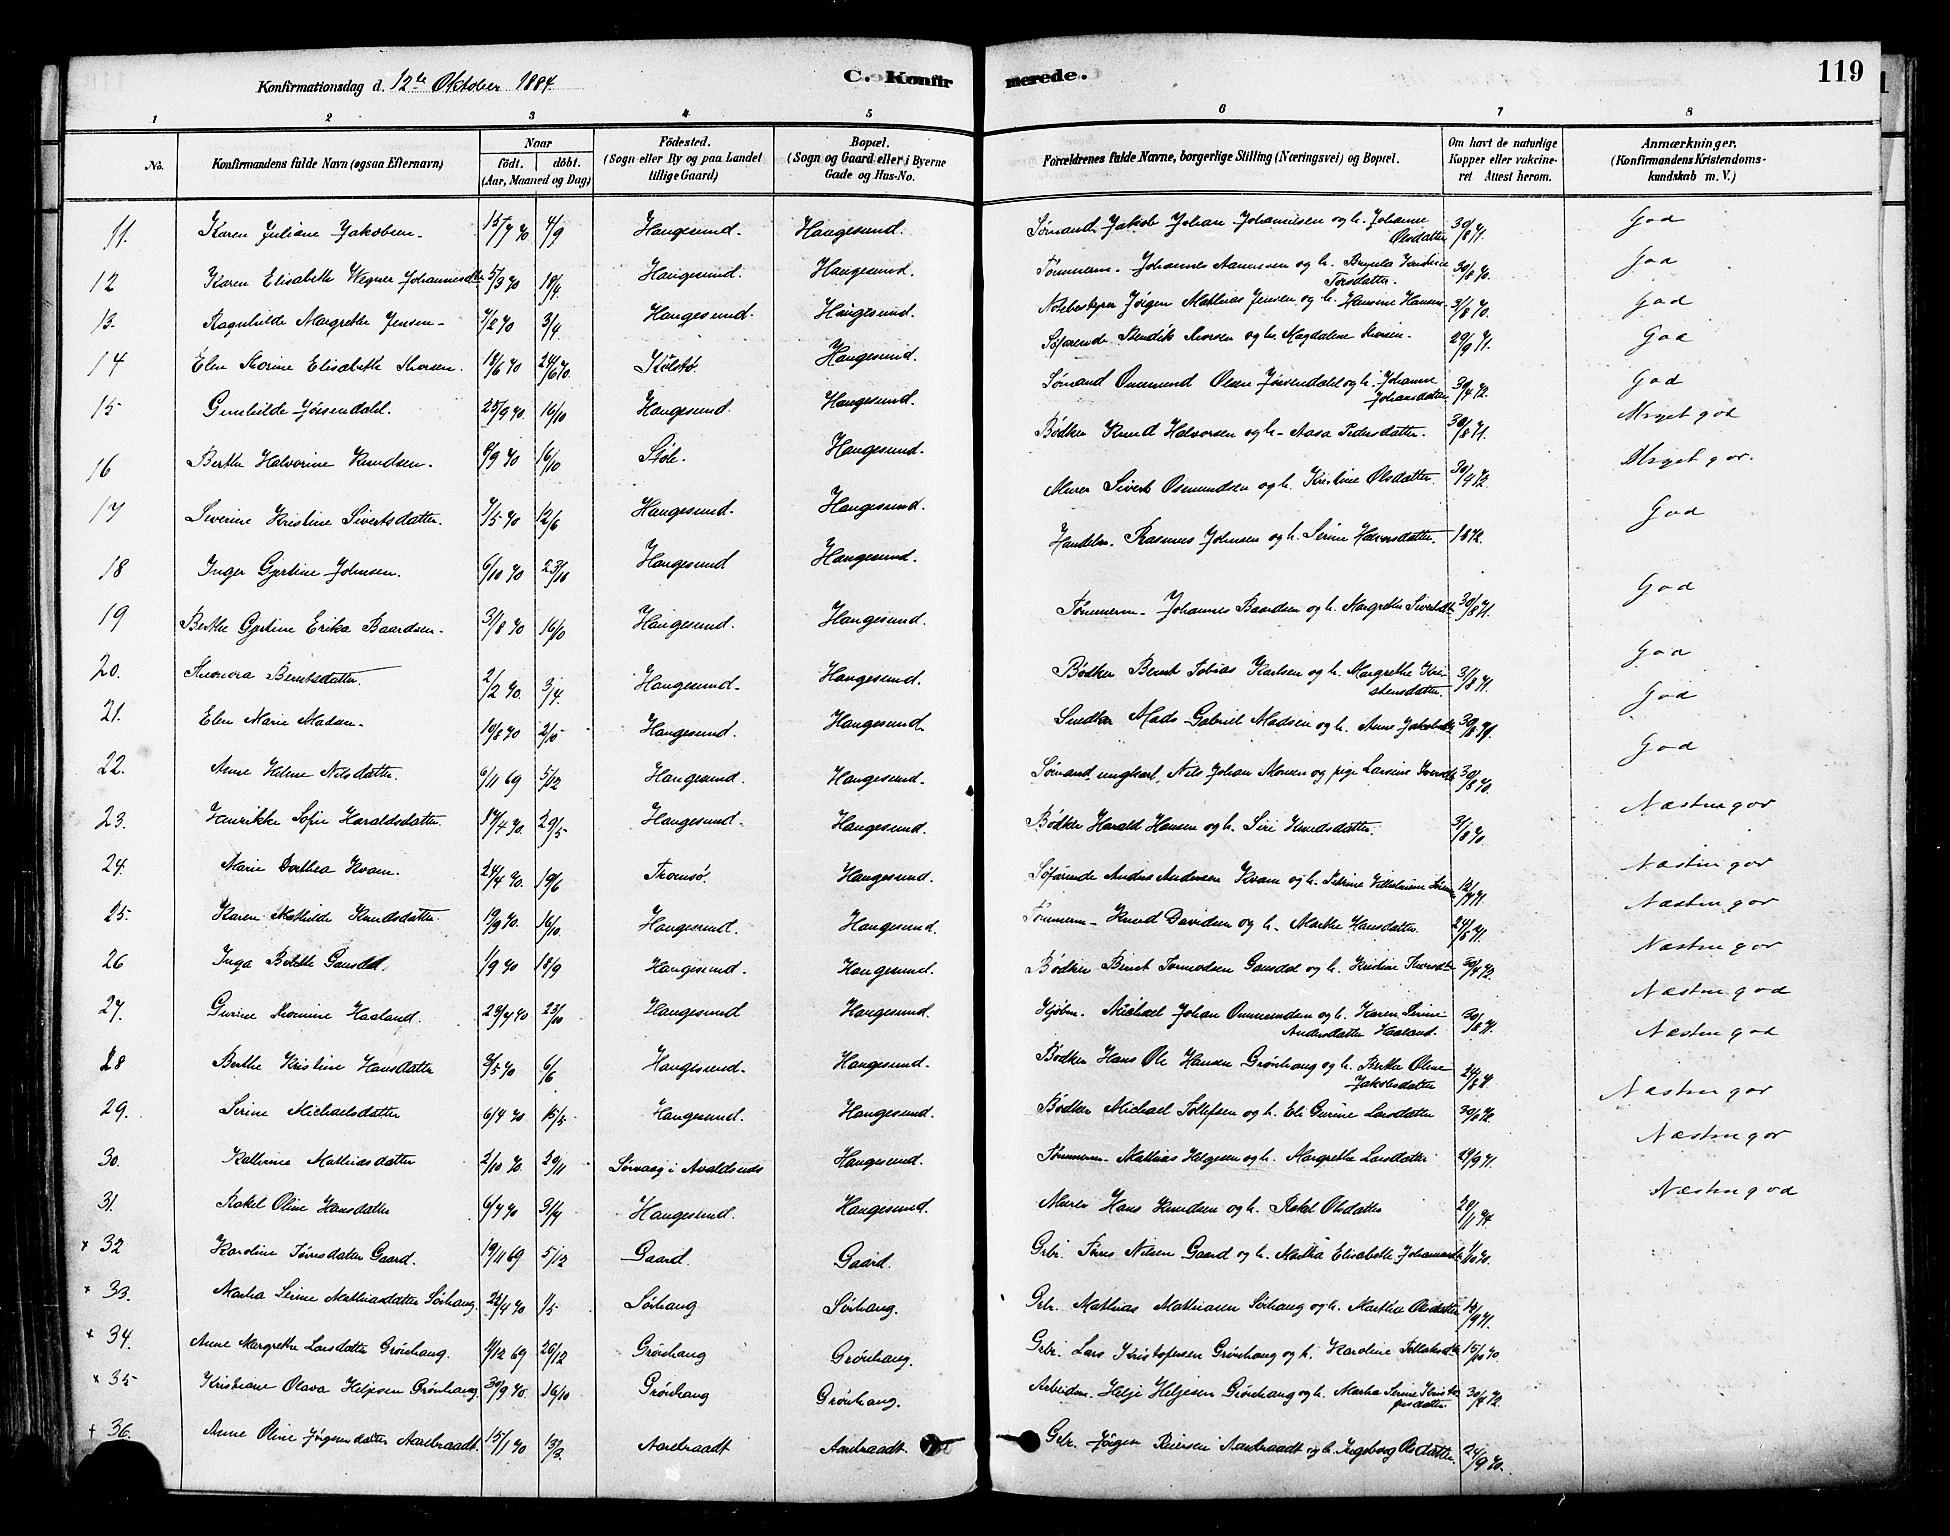 Konfirmationsdag d. 12te Oktober 1884.
C. Konfirmerede.
119
1 2 3 4 5 6 7 8
No.
Konfirmandens fulde Navn (ogsaa Efternavn)
Naar
födt. döbt.
(Aar, Maaned og Dag)
Födested.
(Sogn eller By og paa Landet
tillige Gaard)
Bopæl.
(Sogn og Gaard eller i Byerne
Gade og Hus-No.
Forældrenes fulde Navne, borgerlige Stilling (Næringsvei) og Bopæl.
Om havt de naturlige
Kopper eller vakcine-
ret Attest herom.
Anmærkninger.
(Konfirmandens Kristendoms-
kundskab m. V.)
11. Karen Juliane Jakobsen. 15/7 70 4/9 Haugesund. Haugesund. Sømand Jakob Johan Johannesen og h. Johanne Olsdatter 30/8 71. God
12 Karen Elisabeth Wegner Johannesdtr 5/3 70 18/4 Haugesund. Haugesund. Tømmerm. Johannes Aanensen og h. Torsdatter. 30/8 70. God
13. Ragnhilde Margrethe Jensen 7/2 70 3/4 Haugesund. Haugesund. Jörgen Mathias Jensen og h. Hansine Hansen 3/8 70. God
14 Elen Thorine Elisabeth Thorsen. 18/6 70 24/6 70. Haugesund. Søfarende Bendik Thorsen og h. Magdalene Thorsen. 29/9 71. God
15 Gunhilde Jörsendahl. 25/9 70. 16/10 Haugesund. Haugesund. Sømand Onemund Olsen Jörsendal og h. Johanne Johansdatter 30/4 72. God
16 Berthe Halvorine Knudsen. 8/9 70 16/10 Støle. Haugesund. Bødker Knud Halvorsen og h. Aasa Pedersdatter. 30/8 71. Meget god
17 Severine Kristine Sivertsdatter. 7/5 70 12/6 Haugesund. Haugesund. Murer Sivert Osmundsen og h. Kristine Olsdatter. 30/9 72. Meget god.
18 Inger Gjertine Johnsen. 6/10 70 23/10 Haugesund Haugesund. Handelsm. Rasmus Johnsen og h. Serine Halvorsdatter. 1872. God
19 Berthe Gjertine Erika Baardsen. 31/8 70 16/10 Haugesund. Haugesund. Tømmerm. Johannes Baardsen og h. Margrethe Sivertsdt. 30/8 71. God
20. Theonora Berntsdatter. 2/2 70. 3/4. Haugesund. Haugesund. Bødker Bernt Tobias Karlsen og h. Margrethe Kristensdatter. 31/8 71. God
21. Elen Marie Madsen. 19/8 70 2/10 Haugesund. Haugesund. Snedker Mads Gabriel Madsen og h. Anne Jakobsdtr 30/8 71. God
22. Anne Helene Nilsdatter. 6/11 69 5/12 Haugesund. Haugesund. Sømand, ungkarl, Nils Johan Monsen og pige Larsine 30/8 70. God
23. Henrikke Sofie Haraldsdatter. 17/4 70. 29/5 Haugesund. Haugesund. Bødker Harald Hansen og h. Siri Knudsdatter. 31/8 70. Næsten god
24. Marie Dorthea Kvam. 24/4 70. 19/6 Tromsø. Haugesund. Søfarende Anders Andersen Kvam og h. Petrine Vilhelmine 12/7 71. Næsten god
25. Karen Mathilde Knudsdatter. 19/9 70. 16/10 Haugesund. Haugesund. Tømmerm. Knud Davidsen og h. Marthe Hansdatter. 24/8 71. Næsten god
26 Inga Bertthe Gausdal. 1/9 70 18/9 Haugesund. Haugesund. Bødker Bernt Tormodsen Gausdal og h. Kristine Thorsdtr 30/4 72. Næsten god
27. Gurine Haaland. 23/9 70 23/10 Haugesund Haugesund. Michael Johan Onnundsen og h. Karen Serine Andersdatter Haaland. 30/8 71. Næsten god
28 Berthe Kristine Hansdatter 9/5 70 6/6 Haugesund. Haugesund. Bødker Hans Ole Hansen Grønhaug og h. Berthe Oline Jakobsdatter 24/8 71. Næsten god
29. Serine Michaelsdatter 6/4 70 15/5 Haugesund. Haugesund. Bødker Michael Tollefsen og h. Eli Gurine Larsdatter 30/6 72. Næsten god
30. Kathrine Mathiasdatter 2/10 70. 20/11 Sørvaag i Avaldsnes Haugesund. Tømmerm. Mathias Helgesen og h. Margrethe Larsdatter 29/9 71. Næsten god
31. Rakel Oline Hansdatter 6/4 70 3/4 Haugesund. Haugesund. Murer Hans Knudsen og h. Rakel Olsdatter 20/11 74. Næsten god
x 32 Karoline Tørresdatter Gaard. 19/11 69 5/12 Gaard. Gaard. Gbr. Tørres Nilsen Gaard og h. Martha Elisabeth Johannesdtr 1/10 70.
x 33. Martha Serine Mathiasdatter Sørhaug. 22/4 70 1/5 Sørhaug Sørhaug. Gbr. Mathias Mathiasen Sørhaug og h. Martha Olsdatter 14/9 71.
x 34. Anne Margrethe Larsdatter Grönhaug. 4/12 69 26/12 Grönhaug Grönhaug. Gbr. Lars Kristofersen Grönhaug og h. Karoline Tollaksdtr 15/10 70
x 35 Kristiane Olava Heljesen Grönhaug. 30/9 70. 16/10 Grönhaug Grönhaug. Arbeidsm. Helje Heljesen Grönhaug og h. Martha Serine Kristofersdatter 30/4 72.
x 36. Anne Oline Jørgensdatter Aarebraadt. 15/1 70 13/3 Aarebraadt Aarebraadt. Gbr. Jørgen Reiersen Aarebraadt og h. Ingeborg Olsdatter. 24/9 70.